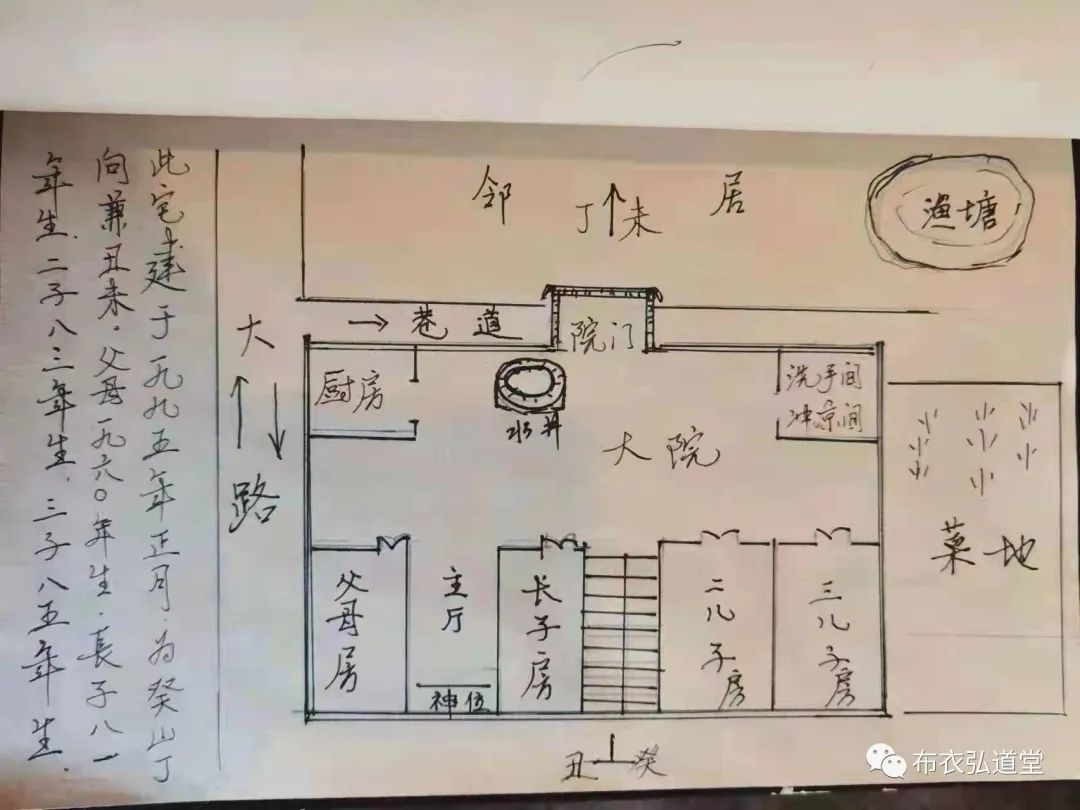 此宅建于一九九五年正月，为癸山丁
向兼丑未。父母一九六〇年生。長子八一
年生，二子八三年生，三子八五年生．
邻居
丁 未
渔塘
大路
巷道
院门
厨房
水井
洗手间
冲凉间
大院
菜地
父母居
主厅
神位
长子房
二儿子房
三儿子房
丑 癸
布衣弘道堂